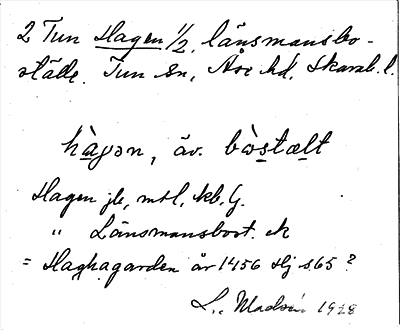 2 Tun Hagen 1/2, länsmansbo-
ställe. Tun sn, Åse hd, Skarab. l.
hàgən, äv. bòstælt
Hagen jb, mtl, kb, G.
" Länsmansbost. ek
= Haghagarden år 1456 Hj s. 65 ?
L. 1928